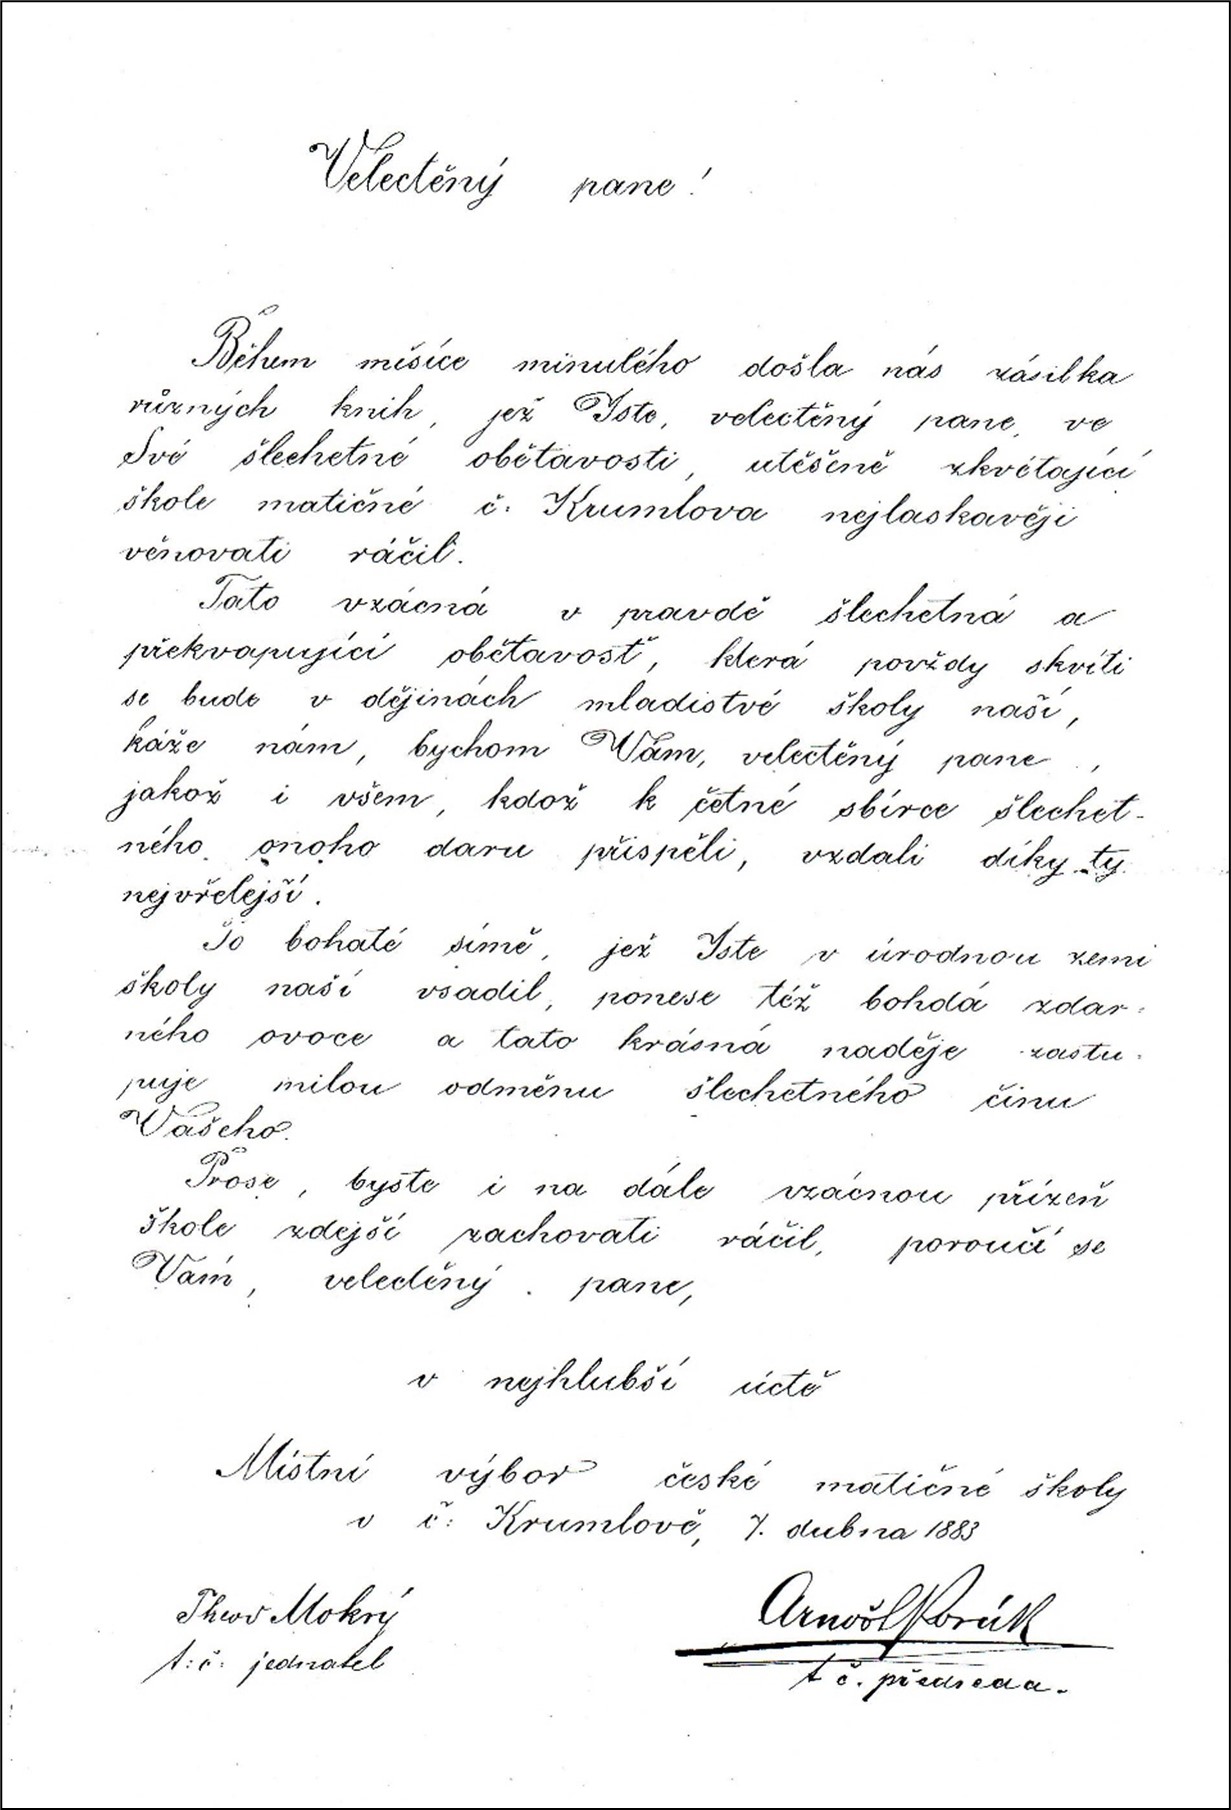 Velectěný pane!
Během měsíce minulého došla nás zásilka
různých knih, jež Jste, velectěný pane, ve
Své šlechetné obětavosti, utěšeně zkvétající
škole matičné č. Krumlova nejlaskavěji
věnovati ráčil.
Tato vzácná v pravdě šlechetná a
překvapující obětavosť, která povždy skvíti
se bude v dějinách mladistvé školy naší,
káže nám, bychom Vám, velectěný pane,
jakož i všem, kdož k četné sbírce šlechet-
ného onoho daru přispěli, vzdali díky ty
nejvřelejší.
To bohaté símě, jež Jste v úrodnou zemi
školy naší vsadil, ponese též bohdá zdar-
ného ovoce a tato krásná naděje zastu-
puje milou odměnu šlechetného činu
Vašeho.
Prose, byste i na dále vzácnou přízeň
škole zdejší zachovati ráčil, poroučí se
Vám, velectěný pane,
v nejhlubší úctě
Místní výbor české matičné školy
v č. Krumlově, 7. dubna 1883
Mokrý Arnošt
t: č: jednatel t č. předseda.